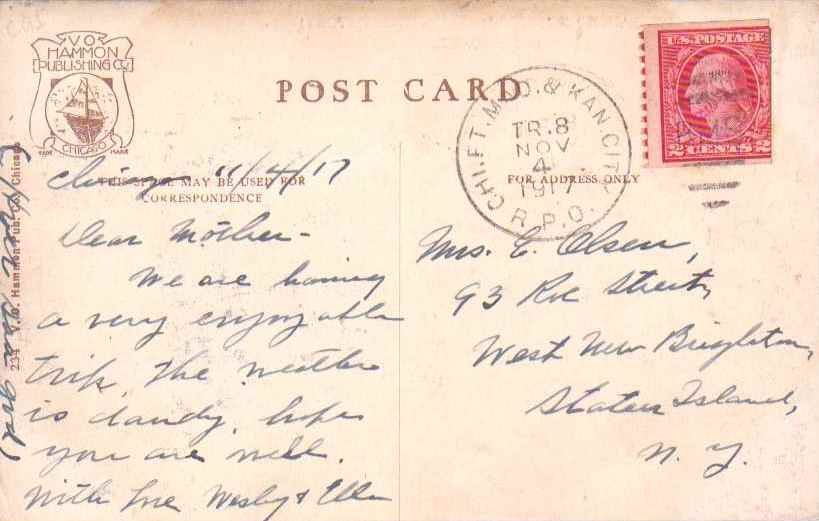 V.O.
HAMMON
PUBLISHING CO.
CHICAGO
TRADE MARK
POST CARD
THIS SPACE MAY BE USED FOR
CORRESPONDENCE
FOR ADDRESS ONLY
CHI. FT. MAD. & KAN. CITY
TR. 8
NOV
4
1917
R.P.O.
U.S. POSTAGE
2 CENTS 2
Chicago 11/4/17
Dear Mother –
We are having
a very enjoyable
trip, the weather
is dandy, hope
you are well.
With love Wesley & Ella
Mrs. C. Olsen,
93 Roe Street,
West New Brighton,
Staten Island,
N. Y.
234 V. O. Hammon Pub. Co., Chicago